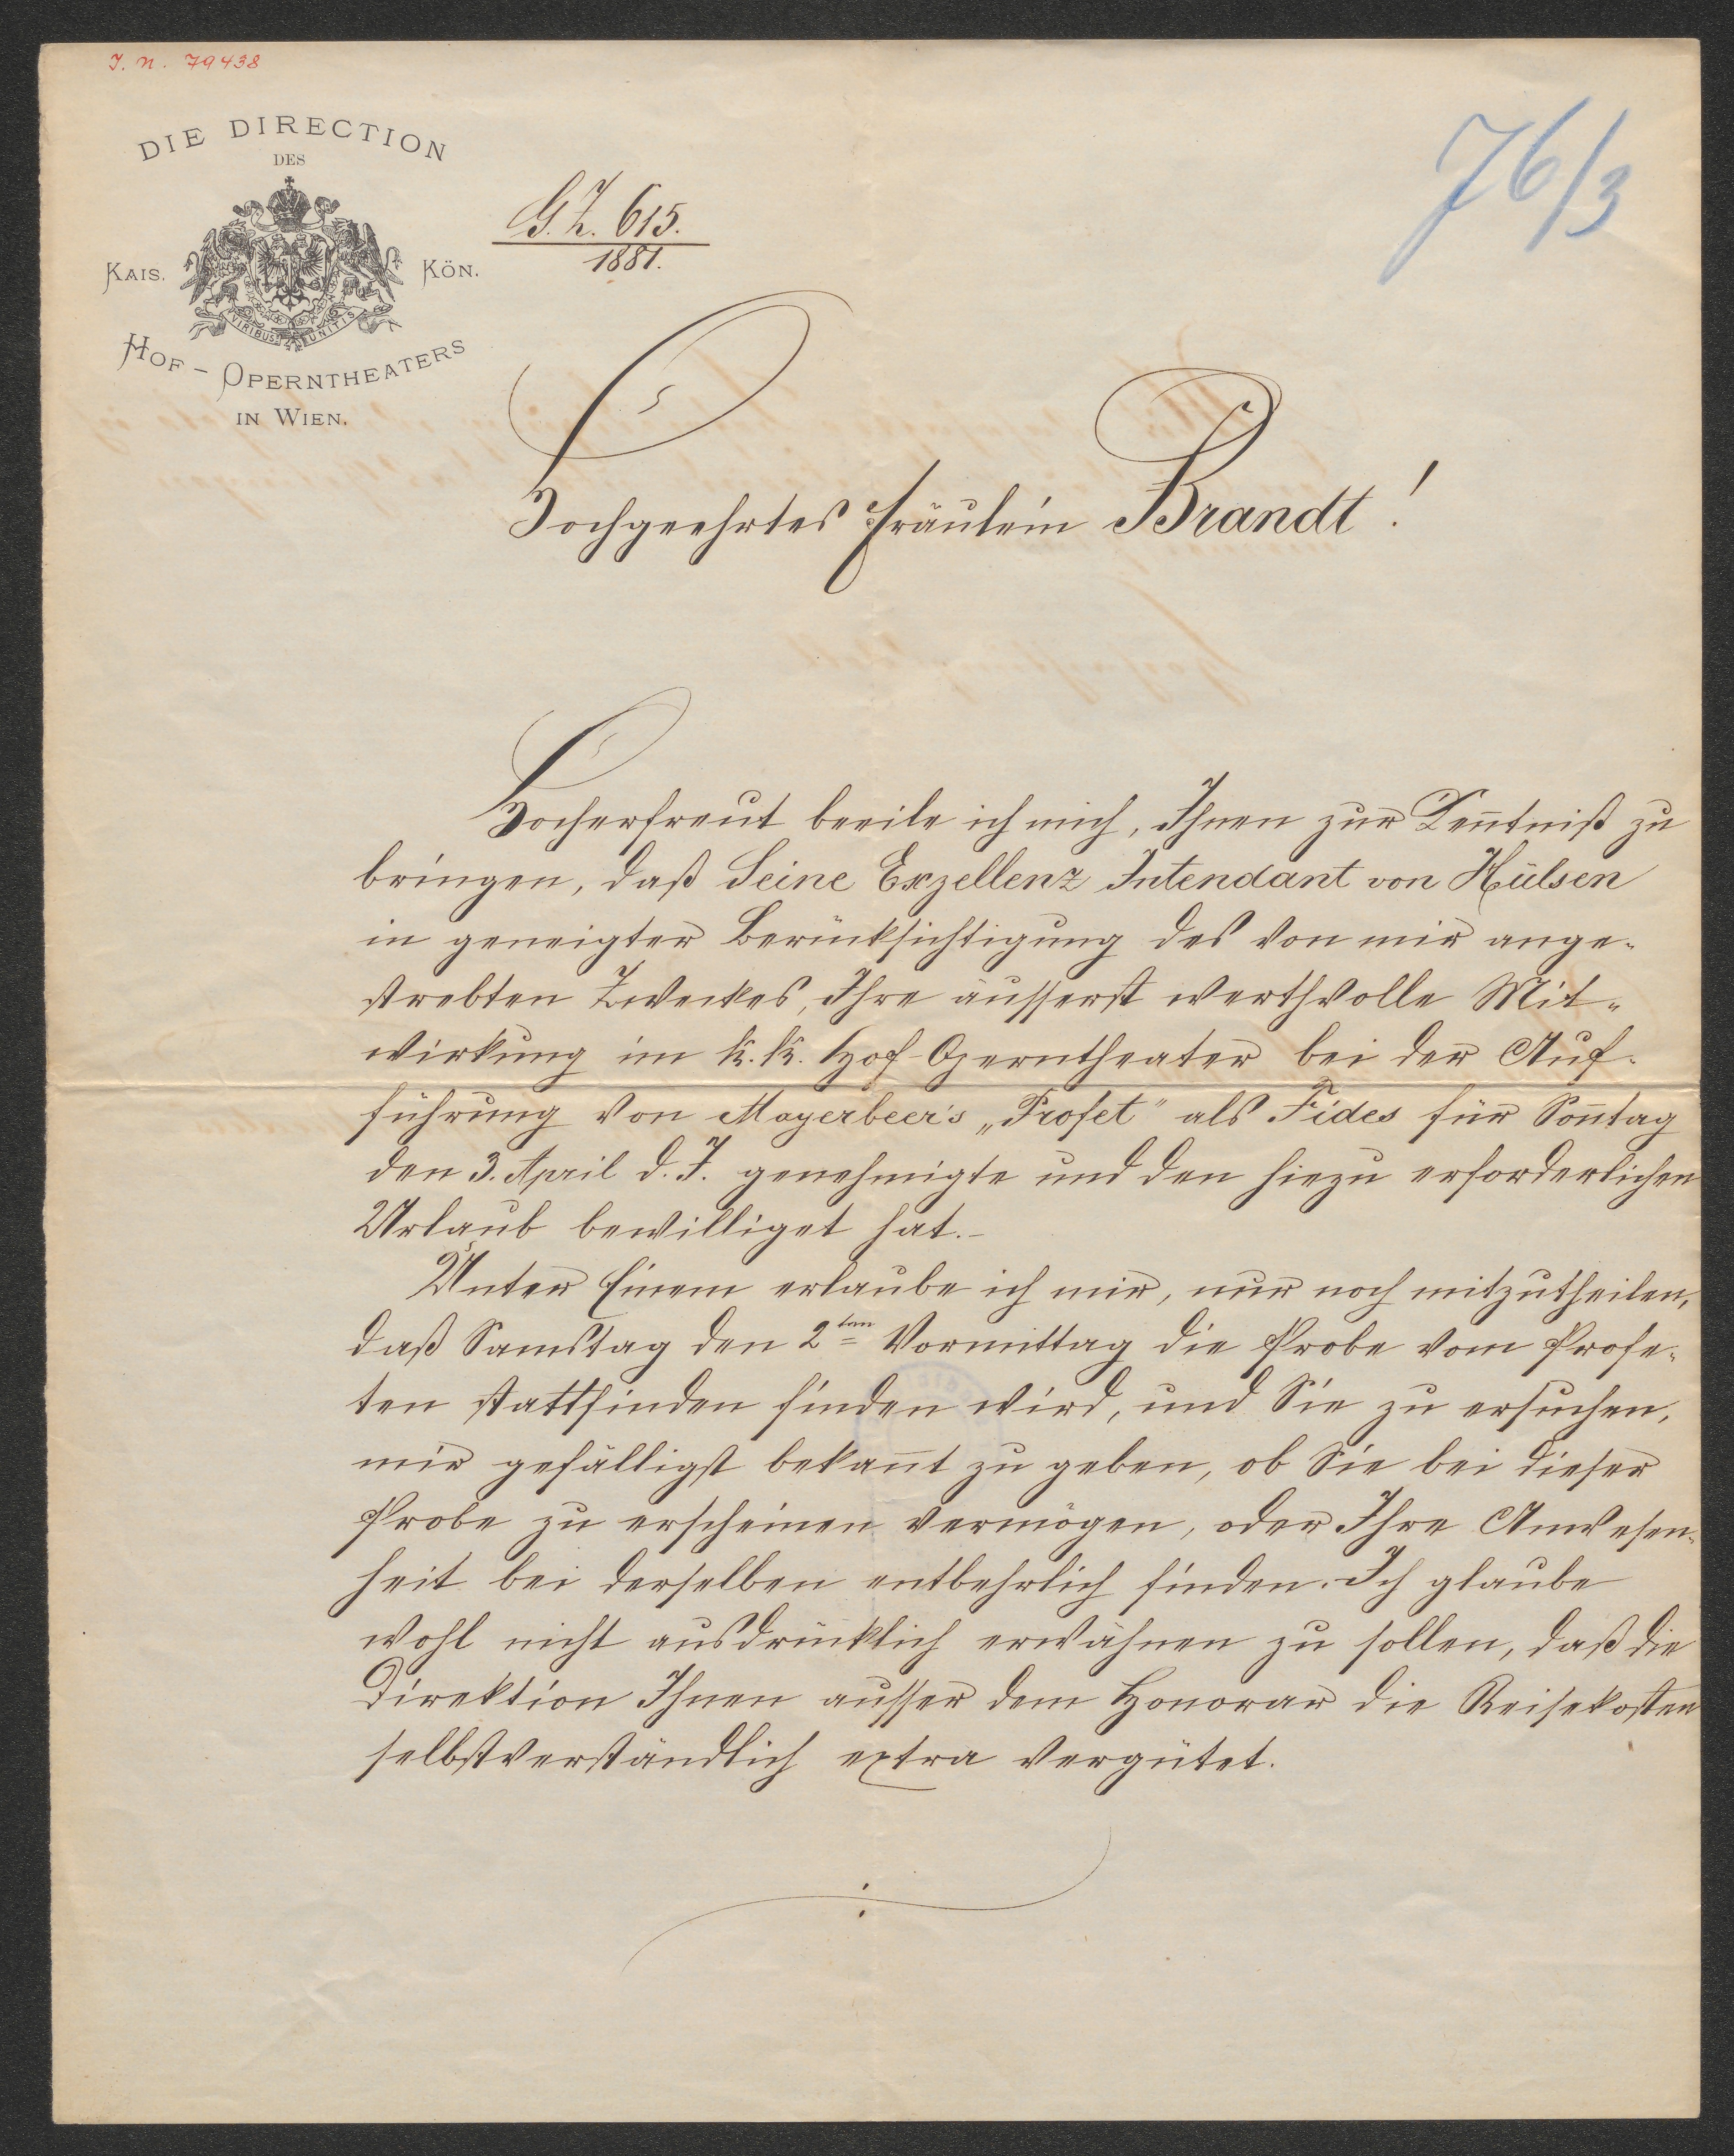 J. N. 79438
76/3
DIE DIRECTION
DES
KAIS. KÖN.
VIRIBUS UNITIS
HOF-OPERNTHEATERS
IN WIEN.
G. Z. 615.
1881.
Hochgeehrtes Fräulein Brandt!
Hocherfreut beeile ich mich, Ihnen zur Keñtniß zu
bringen, daß Seine Exzellenz Intendant von Hülsen
in geneigter Berücksichtigung des von mir ange-
strebten Zweckes, Ihre äusserst werthvolle Mit-
wirkung im k. k. Hof-Operntheater bei der Auf-
führung von Mayerbeer's „Profet" als Fides für Soñtag
den 3. April d. J. genehmigte und den hiezu erforderlichen
Urlaub bewilliget hat.-
Unter Einem erlaube ich mir, nur noch mitzutheilen,
daß Samstag den 2ten Vormittag die Probe vom Profe-
ten stattfinden finden wird, und Sie zu ersuchen,
mir gefälligst bekañt zu geben, ob Sie bei dieser
Probe zu erscheinen vermögen, oder Ihre Anwesen-
heit bei derselben entbehrlich finden. Ich glaube
wohl nicht ausdrücklich erwähnen zu sollen, daß die
Direktion Ihnen ausser dem Honorar die Reisekosten
selbstverständlich extra vergütet.